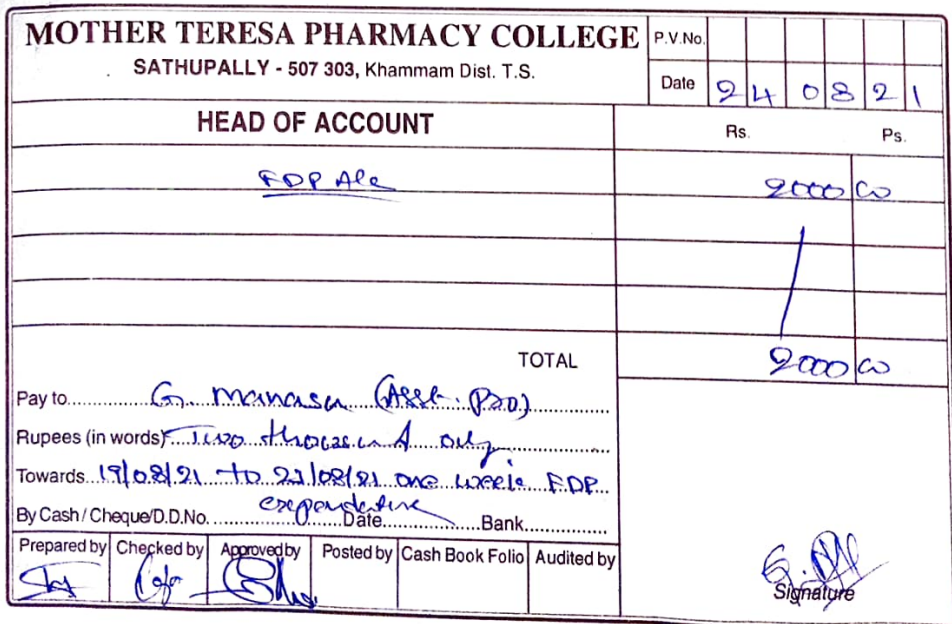 MOTHER TERESA PHARMACY COLLEGE
SATHUPALLY - 507 303, Khammam Dist. T.S.
P.V.No.
Date 24 08 21
HEAD OF ACCOUNT
Rs. Ps.
FDP A/c 2000 00
TOTAL 2000 00
Pay to G. Manasa (Asst. Pro)
Rupees (in words) Two thousand only
Towards 19/08/21 to 23/08/21 one week FDP
expenditure
By Cash / Cheque/D.D.No. Date Bank
Prepared by Checked by Approved by Posted by Cash Book Folio Audited by
Signature